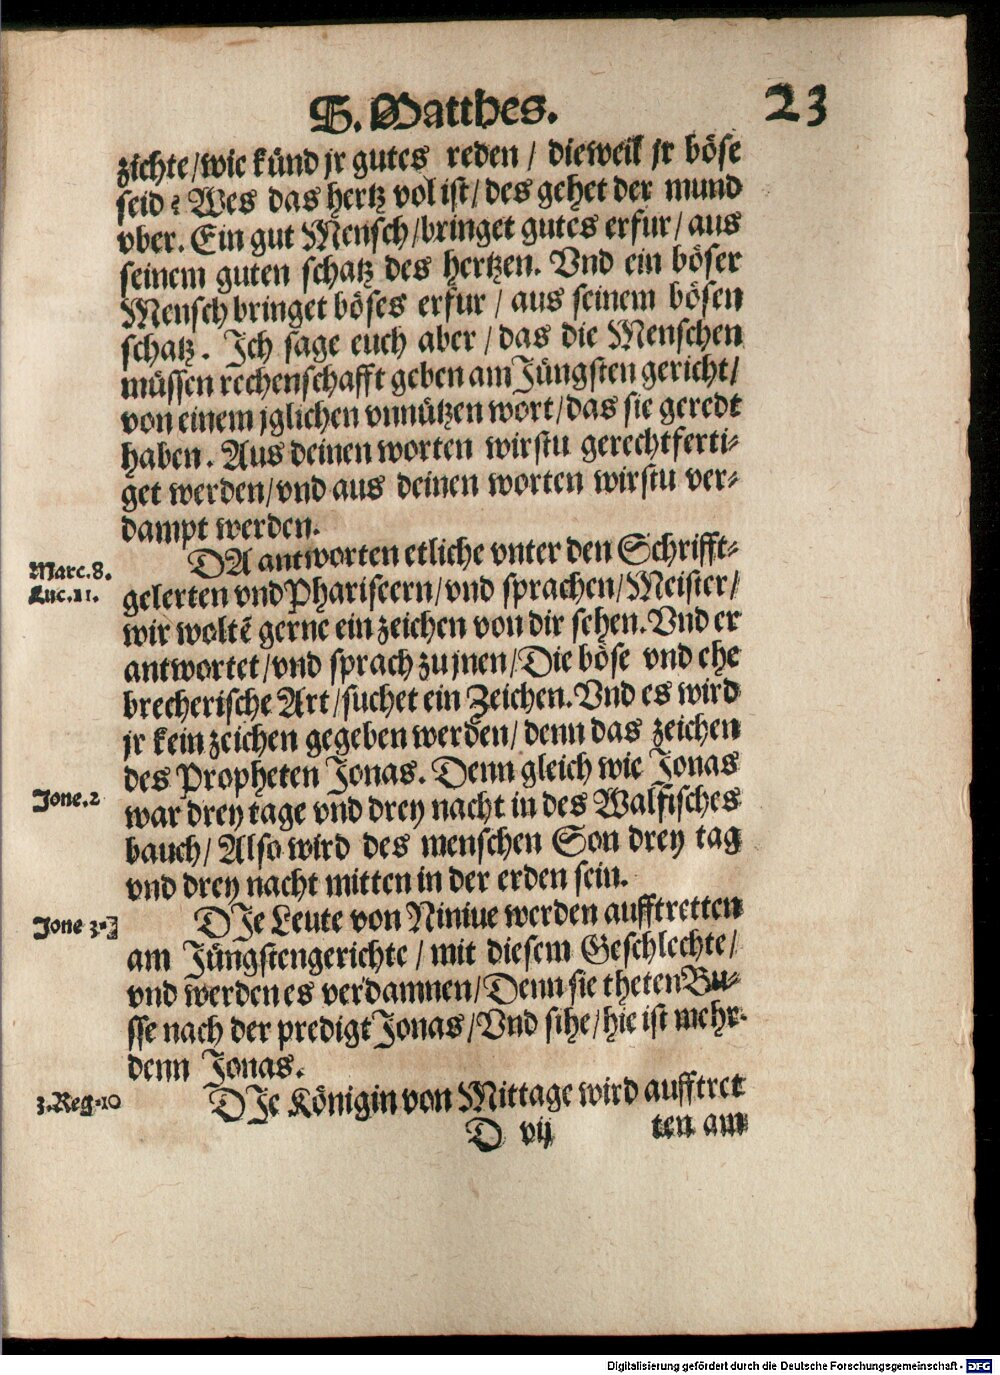 S. Matthes.
23
zichte/wie künd jr gutes reden / dieweil jr böse
seid? Wes das hertz vol ist/des gehet der mund
vber. Ein gut Mensch/bringet gutes erfur/aus
seinem guten schatz des hertzen. Vnd ein böser
Mensch bringet böses erfur / aus seinem bösen
schatz. Ich sage euch aber / das die Menschen
müssen rechenschafft geben am Jüngsten gericht/
von einem jglichen vnnützen wort/das sie geredt
haben. Aus deinen worten wirstu gerechtferti-
get werden/vnd aus deinen worten wirstu ver-
dampt werden.
Marc.8.
Luc.11.
DA antworten etliche vnter den Schrifft-
gelerten vnd Phariseern/vnd sprachen/Meister/
wir woltē gerne ein zeichen von dir sehen. Vnd er
antwortet/vnd sprach zu jnen/Die böse vnd ehe
brecherische Art/suchet ein Zeichen. Vnd es wird
jr kein zeichen gegeben werden/denn das zeichen
des Propheten Jonas. Denn gleich wie Jonas
Jone.2
war drey tage vnd drey nacht in des Walfisches
bauch/Also wird des menschen Son drey tag
vnd drey nacht mitten in der erden sein.
Jone 3.
DIe Leute von Niniue werden aufftretten
am Jüngstengerichte / mit diesem Geschlechte/
vnd werden es verdamnen/Denn sie theten Bu-
sse nach der predigt Jonas/Vnd sihe/hie ist mehr
denn Jonas.
3.Reg.10
DIe Königin von Mittage wird aufftret
D vij
ten am
Digitalisierung gefördert durch die Deutsche Forschungsgemeinschaft - DFG